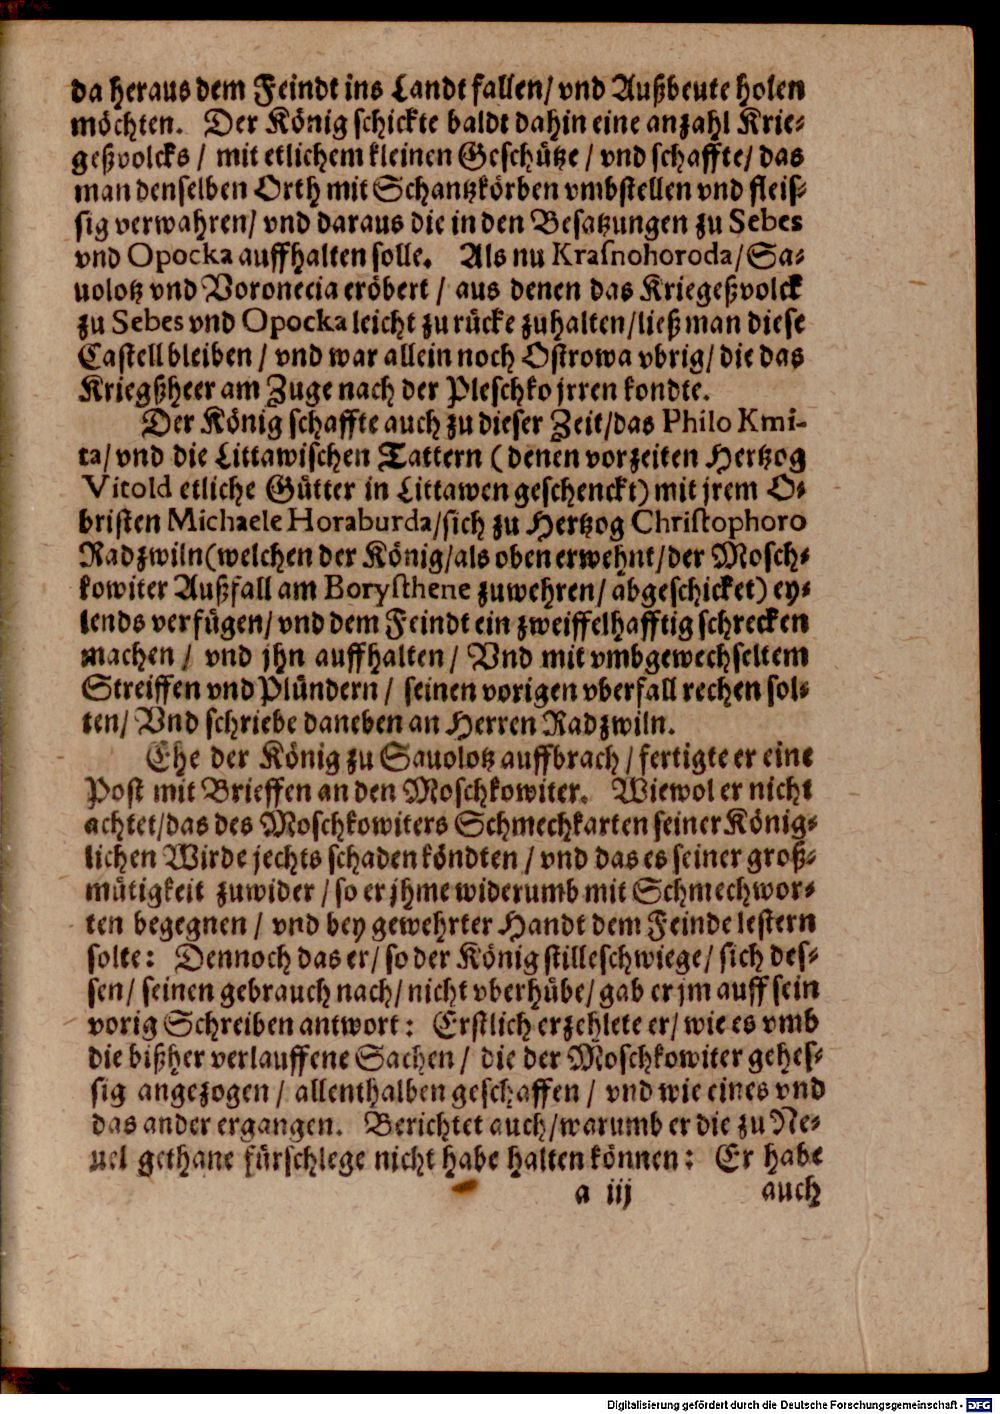 da heraus dem Feindt ins Landt fallen/ vnd Außbeute holen
möchten. Der König schickte baldt dahin eine anzahl Krie-
geßvolcks / mit etlichem kleinen Geschütze / vnd schaffte/ das
man denselben Orth mit Schantzkörben vmbstellen vnd fleis-
sig verwahren/ vnd daraus die in den Besatzungen zu Sebes
vnd Opocka auffhalten solle. Als nu Krasnohoroda/ Sa-
uolotz vnd Voronecia eröbert / aus denen das Kriegeßvolck
zu Sebes vnd Opocka leicht zu rücke zuhalten/ ließ man diese
Castell bleiben / vnd war allein noch Ostrowa vbrig/ die das
Kriegßheer am Zuge nach der Pleschko jrren kondte.
Der König schaffte auch zu dieser Zeit/ das Philo Kmi-
ta/ vnd die Littawischen Tattern (denen vorzeiten Hertzog
Vitold etliche Gütter in Littawen geschenckt) mit jrem O-
bristen Michaele Horaburda/ sich zu Hertzog Christophoro
Radzwiln (welchen der König/ als oben erwehnt/ der Mosch-
kowiter Außfall am Borysthene zuwehren/ abgeschicket) ey-
lends verfügen/ vnd dem Feindt ein zweiffelhafftig schrecken
machen / vnd jhn auffhalten / Vnd mit vmbgewechseltem
Streiffen vnd Plündern / seinen vorigen vberfall rechen sol-
ten/ Vnd schriebe daneben an Herren Radzwiln.
Ehe der König zu Sauolotz auffbrach / fertigte er eine
Post mit Brieffen an den Moschkowiter. Wiewol er nicht
achtet/ das des Moschkowiters Schmechkarten seiner König-
lichen Wirde jechts schaden köndten / vnd das es seiner groß-
mütigkeit zuwider / so er jhme widerumb mit Schmechwor-
ten begegnen / vnd bey gewehrter Handt dem Feinde lestern
solte: Dennoch das er/ so der König stilleschwiege/ sich des-
sen/ seinen gebrauch nach/ nicht vberhübe/ gab er jm auff sein
vorig Schreiben antwort: Erstlich erzehlete er/ wie es vmb
die bißher verlauffene Sachen / die der Moschkowiter gehes-
sig angezogen / allenthalben geschaffen / vnd wie eines vnd
das ander ergangen. Berichtet auch/ warumb er die zu Ne-
uel gethane fürschlege nicht habe halten können: Er habe
a iij auch
Digitalisierung gefördert durch die Deutsche Forschungsgemeinschaft - DFG